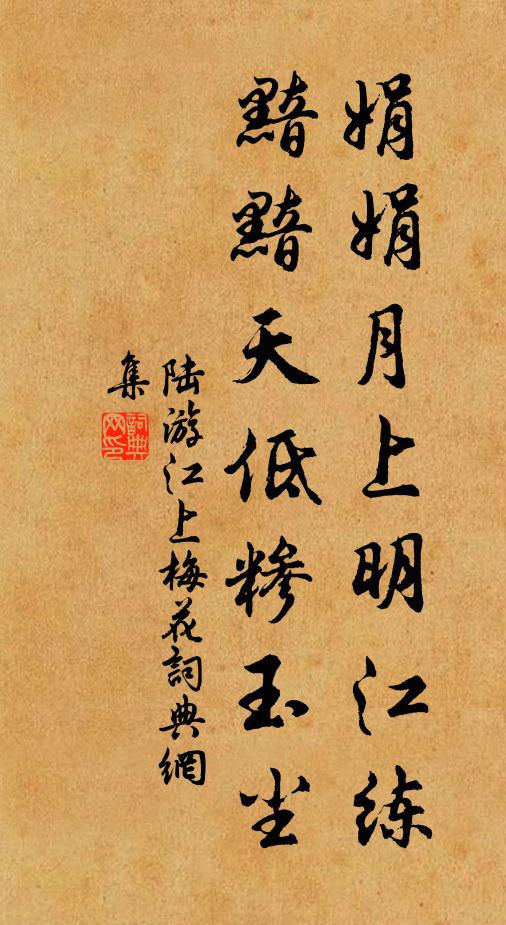 娟娟月上明江练
黯黯天低糁玉尘
陆游江上梅花詞典網
集
詞典網印